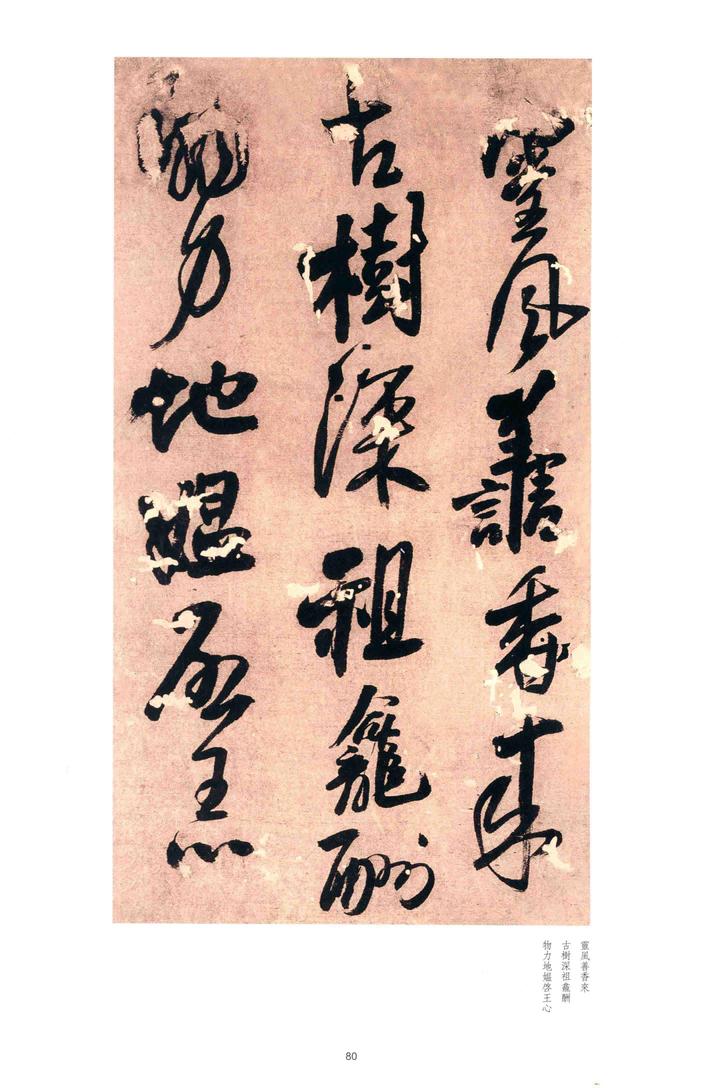 靈風譱香來
古樹深祖龕酬
物力地媼啓王心
靈風善香來
古樹深祖龕酬
物力地媼啓王心
80